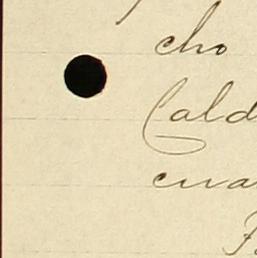 cho
Cald
cua